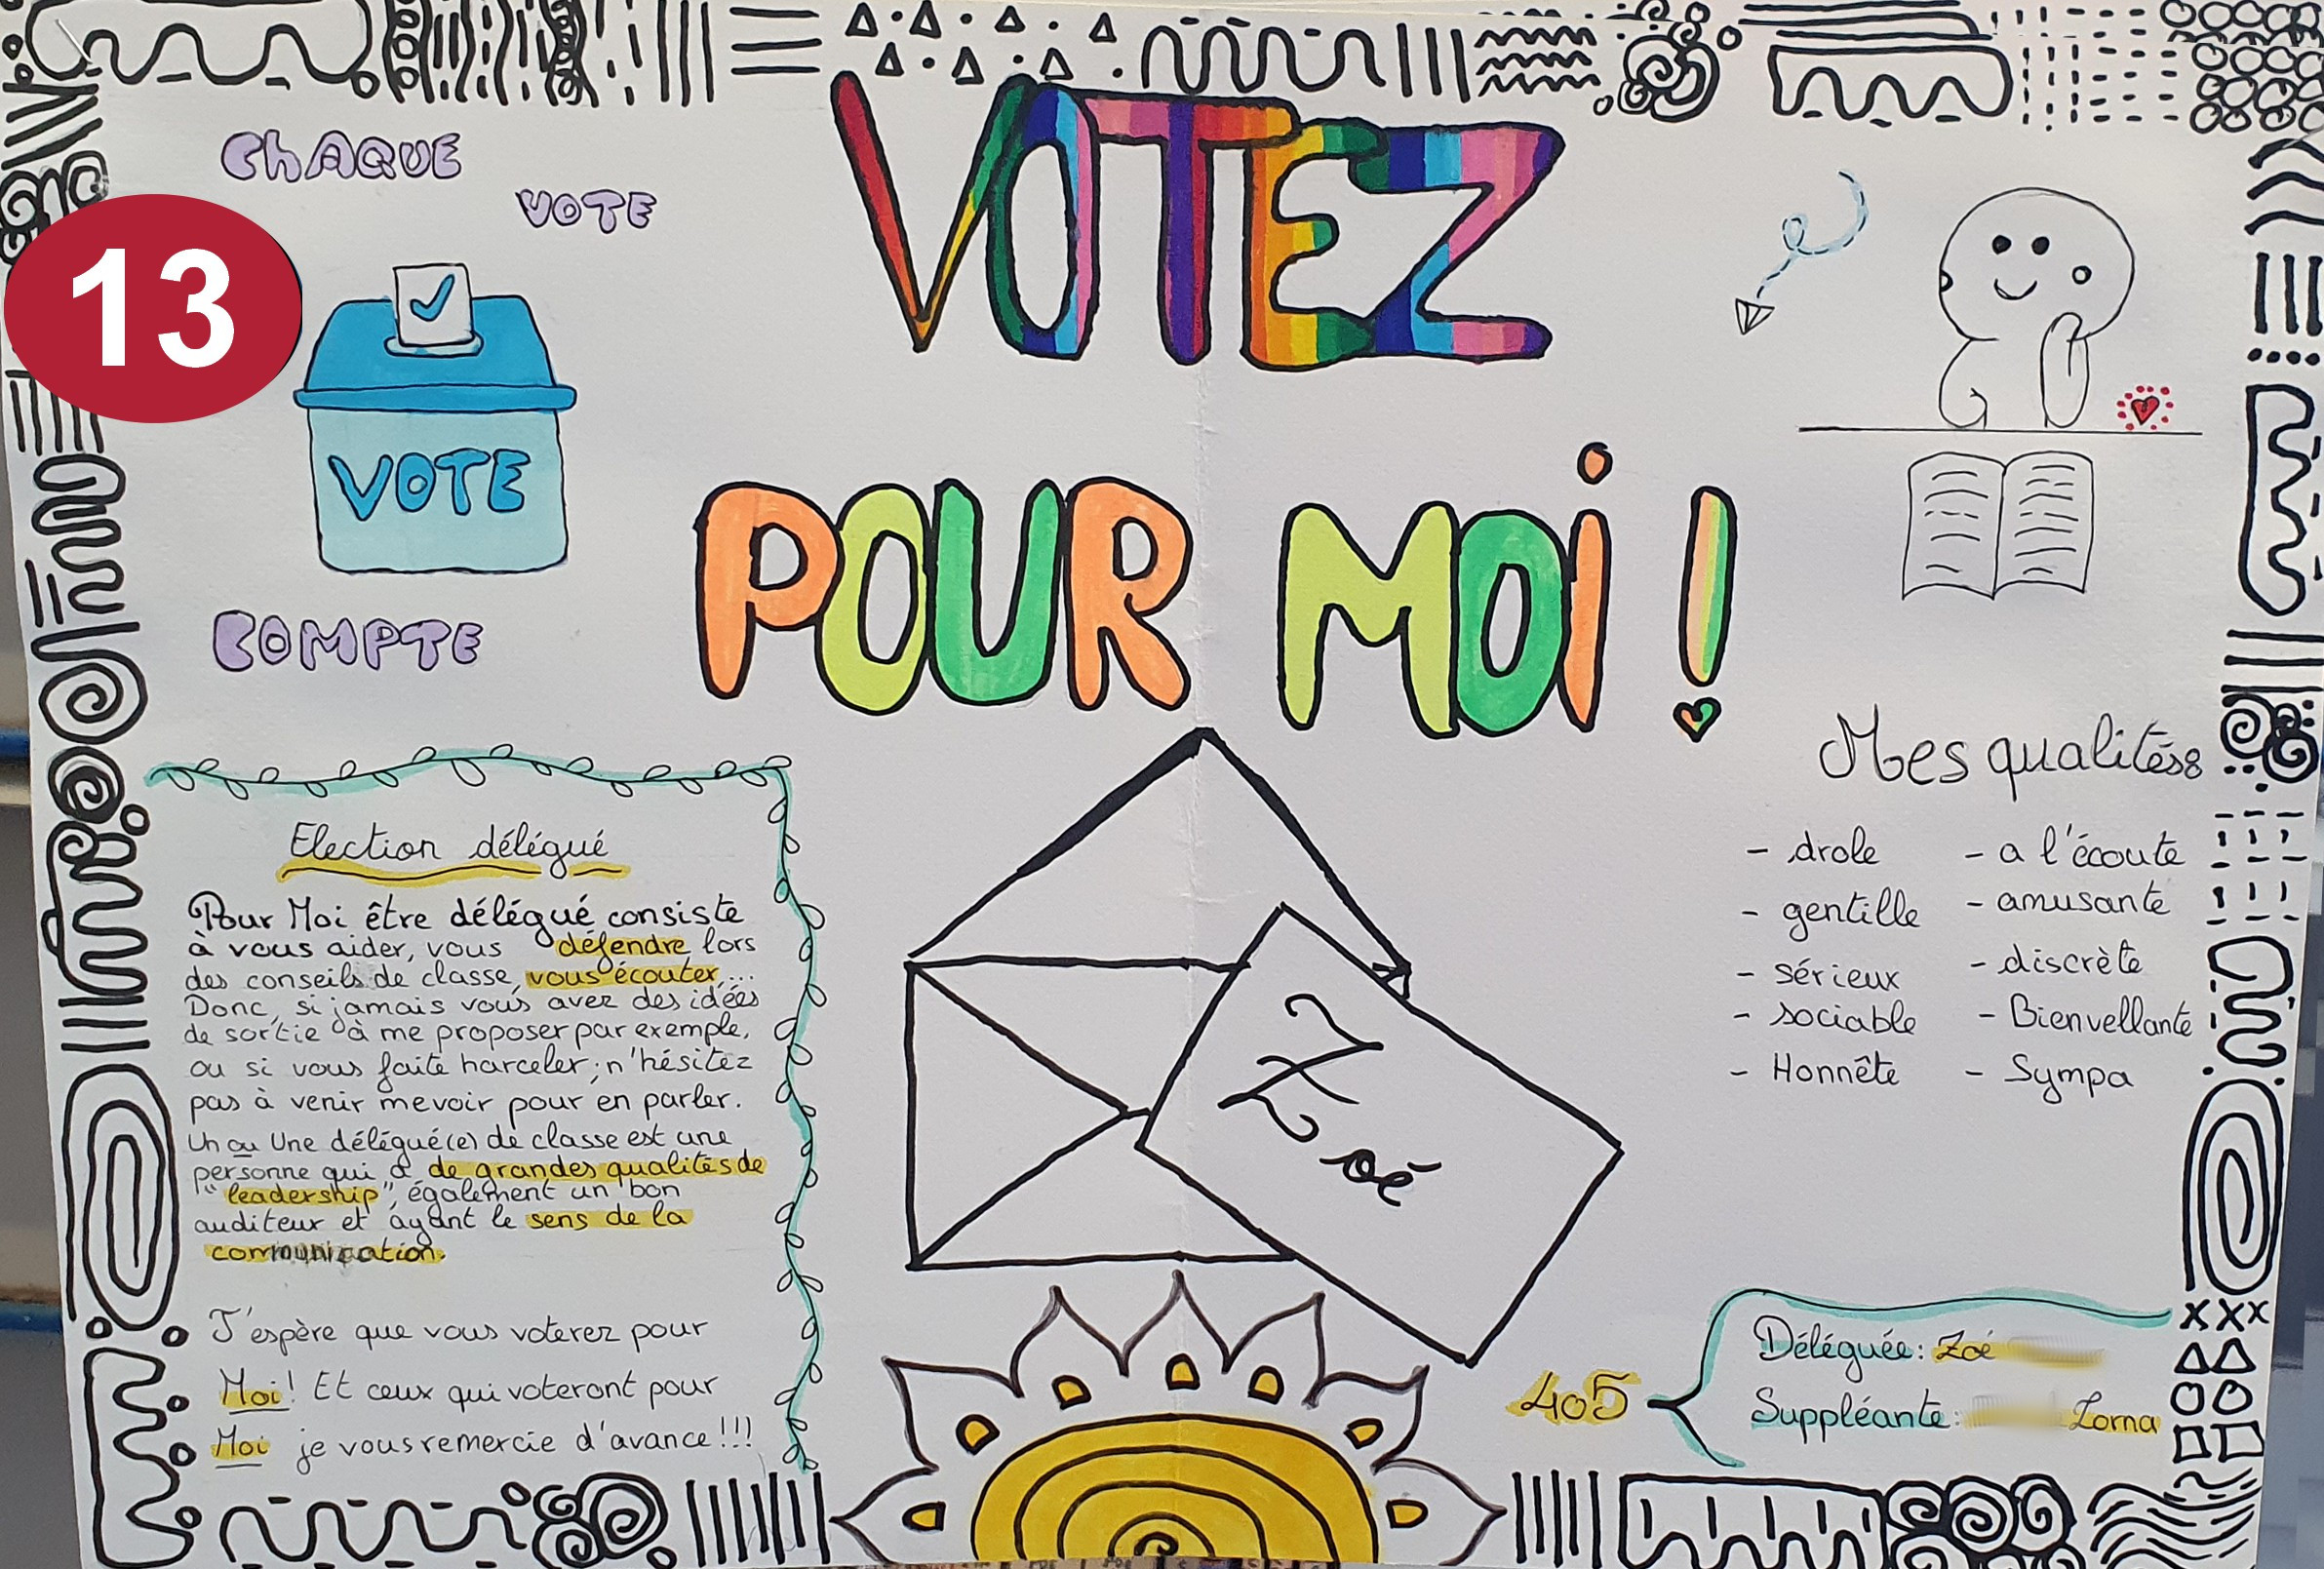 ChAQUE
VOTE
13
VOTE
COMPTE
VOTEZ
POUR MOi !
Election délégué
Pour Moi être délégué consiste
à vous aider, vous défendre lors
des conseils de classe, vous écouter...
Donc, si jamais vous avez des idées
de sortie à me proposer par exemple,
ou si vous faite harceler; n'hésitez
pas à venir me voir pour en parler.
Un ou Une délégué(e) de classe est une
personne qui a de grandes qualités de
"leadership", également un bon
auditeur et ayant le sens de la
communication.
J'espère que vous voterez pour
Moi! Et ceux qui voteront pour
Moi je vous remercie d'avance!!!
Zoé
Mes qualités:
- drole
- gentille
- sérieux
- sociable
- Honnête
- a l'écoute
- amusante
- discrète
- Bienvellante
- Sympa
405
Déléguée: Zoé
Suppléante: Lorna